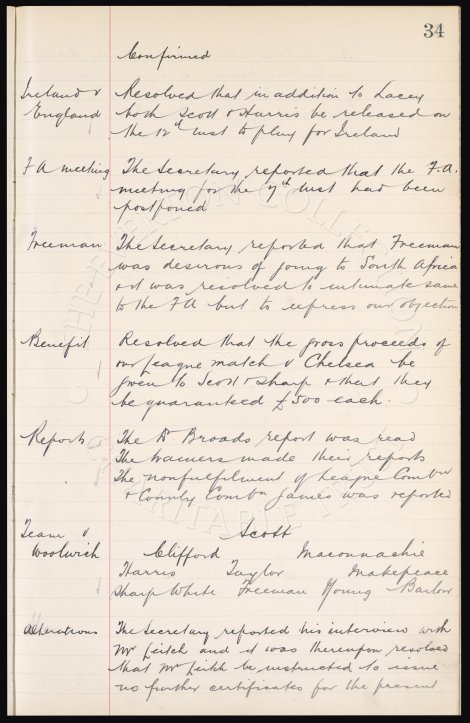 34
Confirmed
Ireland v
England
Resolved that in addition to Lacey
both Scott & Harris be released on
the 12th inst to play for Ireland
F A meeting
The Secretary reported that the F.A.
meeting for the 7th inst had been
postponed
Freeman
The Secretary reported that Freeman
was desirous of going to South Africa
& it was resolved to intimate same
to the F A but to express our objection
Benefit
Resolved that the gross proceeds of
our League match v Chelsea be
given to Scott & Sharp & that they
be guaranteed £500 each.
Reports
The Dr Broads report was read
The trainers made their reports
The nonfulfilment of League Combn
& County Combn games was reported
Team v
Woolwich
Scott
Clifford Maconnachie
Harris Taylor Makepeace
Sharp White Freeman Young Barlow
Alterations
The Secretary reported his interview with
Mr Leitch and it was thereupon resolved
that Mr Leitch be instructed to issue
no further certificates for the present